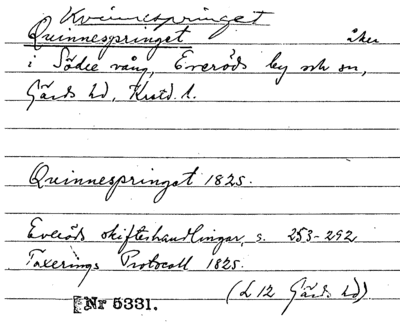 Kvinnespringet
Quinnespringet åker
i Södre vång, Everöds by och sn,
Gärds hd, Krstd. l.
Quinnespringet 1825.
Everöds skifteshandlingar, s. 253-292
Taxerings Protocoll 1825.
(L 12 Gärds hd)
Nr 5331.